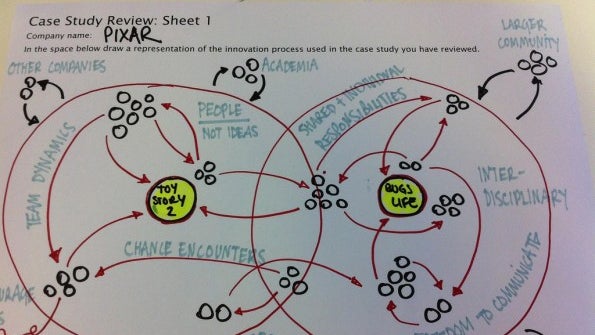 Case Study Review: Sheet 1
Company name: PIXAR
In the space below draw a representation of the innovation process used in the case study you have reviewed.
LARGER
COMMUNITY
OTHER COMPANIES
ACADEMIA
PEOPLE
NOT IDEAS
SHARED + INDIVIDUAL
RESPONSIBILITIES
TEAM DYNAMICS
TOY
STORY
2
BUGS
LIFE
INTER-
DISCIPLINARY
CHANCE ENCOUNTERS
TO COMMUNICATE